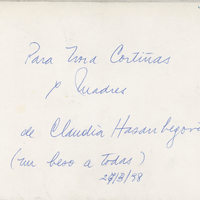 Para Nora Cortiñas
y Madres
de Claudia Hasanbegovic
(un beso a todas)